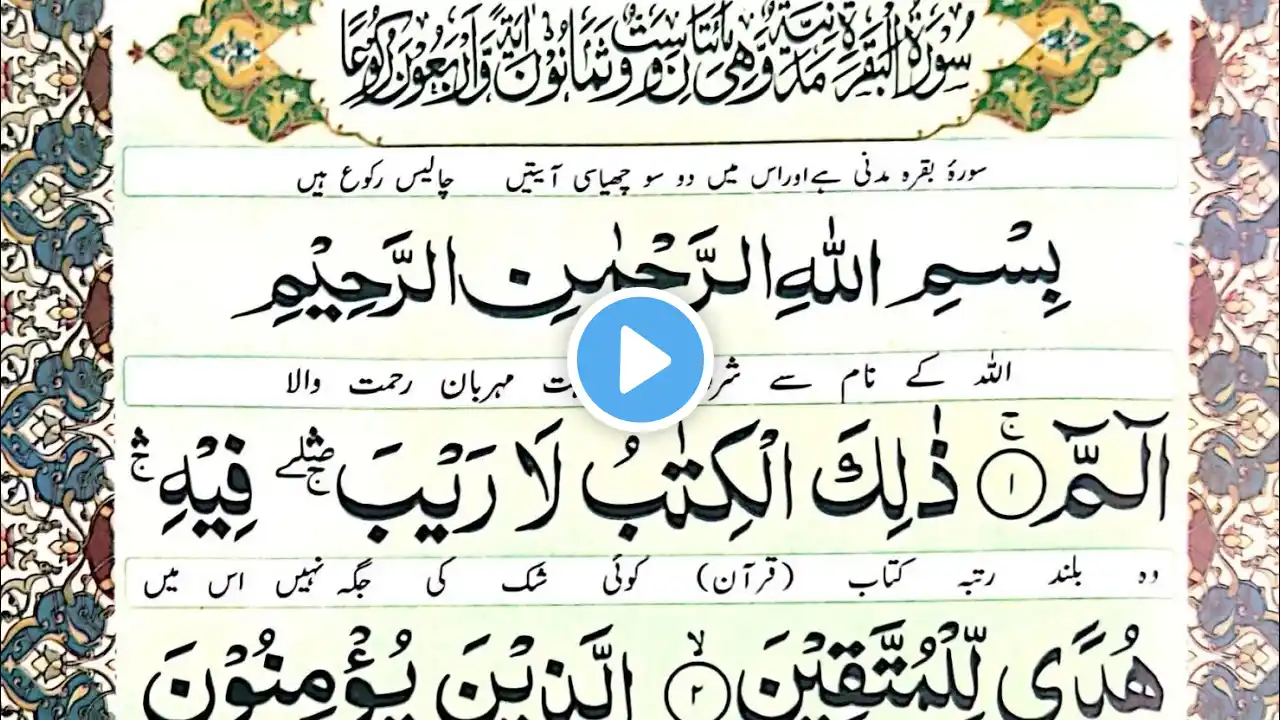 سُوْرَةُ الْبَقَرَةِ مَدَنِيَّةٌ وَّهِيَ مِائَتَانِ وَسِتٌّ وَّثَمَانُوْنَ اٰيَةً وَّاَرْبَعُوْنَ رُكُوْعًا
سورۂ بقرہ مدنی ہے اور اس میں دو سو چھیاسی آیتیں چالیس رکوع ہیں
بِسْمِ اللّٰهِ الرَّحْمٰنِ الرَّحِيْمِ
اللہ کے نام سے مہربان رحمت والا
الٓمّٓ ۚ ۝١ ذٰلِكَ الْكِتٰبُ لَا رَيْبَ ۛۖۚ فِيْهِ ۛۚ
وہ بلند رتبہ کتاب (قرآن) کوئی شک کی جگہ نہیں اس میں
هُدًى لِّلْمُتَّقِيْنَ ۙ ۝٢ الَّذِيْنَ يُؤْمِنُوْنَ